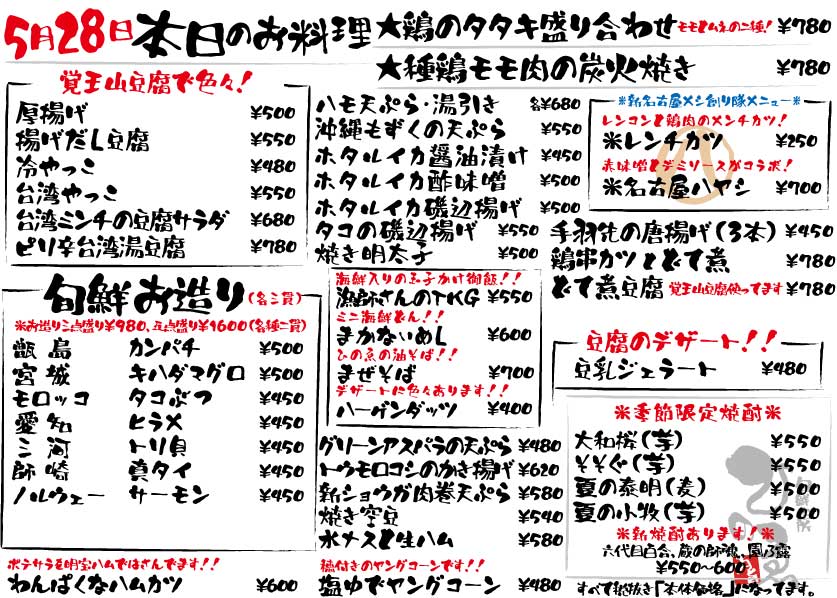 5月28日 本日のお料理
★鶏のタタキ盛り合わせ モモとムネの二種! ¥780
★種鶏モモ肉の炭火焼き ¥780
覚王山豆腐で色々!
厚揚げ ¥500
揚げだし豆腐 ¥550
冷やっこ ¥480
台湾やっこ ¥550
台湾ミンチの豆腐サラダ ¥680
ピリ辛台湾湯豆腐 ¥780
旬鮮お造り(各二貫)
※お造り三点盛り¥980、五点盛り¥1600(各種二貫)
甑島 カンパチ ¥500
宮城 キハダマグロ ¥500
モロッコ タコぶつ ¥450
愛知 ヒラメ ¥450
三河 トリ貝 ¥450
師崎 真タイ ¥450
ノルウェー サーモン ¥450
ポテサラを明宝ハムではさんでます!!
わんぱくなハムカツ ¥600
ハモ天ぷら・湯引き 各¥680
沖縄もずくの天ぷら ¥550
ホタルイカ醤油漬け ¥450
ホタルイカ酢味噌 ¥500
ホタルイカ磯辺揚げ ¥500
タコの磯辺揚げ ¥550
焼き明太子 ¥550
海鮮入りの玉子かけ御飯!!
漁師さんのTKG ¥550
ミニ海鮮どん!!
まかないめし ¥600
ひの魚の油そば!!
まぜそば ¥700
デザートに色々あります!!
ハーゲンダッツ ¥400
グリーンアスパラの天ぷら ¥480
トウモロコシのかき揚げ ¥620
新ショウガ肉巻天ぷら ¥580
焼き空豆 ¥540
水ナスと生ハム ¥580
穂付きのヤングコーンです!!
塩ゆでヤングコーン ¥480
※新名古屋メシ創り隊メニュー※
レンコンと鶏肉のメンチカツ!
※レンチカツ ¥250
赤味噌とデミソースがコラボ!
※名古屋ハヤシ ¥700
手羽先の唐揚げ(3本) ¥450
鶏串カツとどて煮 ¥780
どて煮豆腐 覚王山豆腐使ってます ¥780
豆腐のデザート!!
豆乳ジェラート ¥480
※季節限定焼酎※
大和桜(芋) ¥550
そそぐ(芋) ¥550
夏の泰明(麦) ¥500
夏の小牧(芋) ¥500
※新焼酎あります!※
六代目百合、蔵の師魂、園乃露
¥550〜600
すべて税抜き「本体価格」になってます。